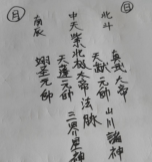 日
北斗
真武大帝 山川諸神
天猷元帥
中天紫北極大帝 法脈 三界星神
天蓬元帥
南辰
翊聖元帥
月